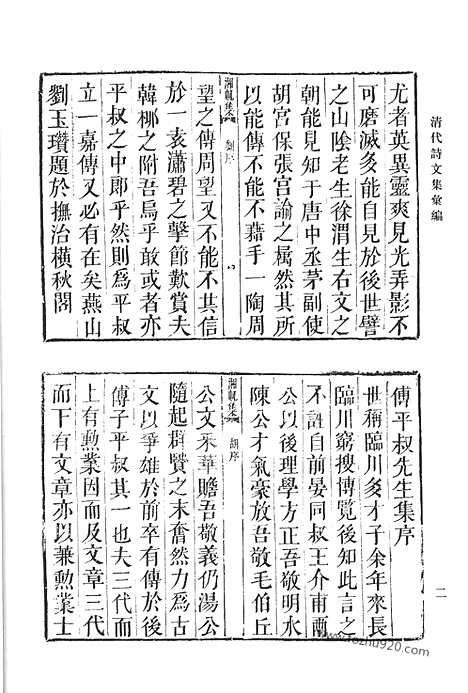 清代詩文集彙編
尤者英異靈爽見光弄影不
可磨滅多能自見於後世譬
之山陰老生徐渭生右文之
朝能見知于唐中丞茅副使
胡宮保張宮諭之屬然其所
以能傳不能不藉手一陶周
湘帆集 劉序
望之傳周望又不能不共信
於一袁瀟碧之擊節歎賞夫
韓柳之附吾烏乎敢或者亦
平叔之中郎乎然則為平叔
立一嘉傳又必有在矣燕山
劉玉瓚題於撫治橫秋閣
傅平叔先生集序
世稱臨川多才子余年來長
臨川窮搜博覽後知此言之
不誣自前晏同叔王介甫兩
公以後理學方正吾敬明水
陳公才氣豪放吾敬毛伯丘
湘帆集 胡序
公文采華贍吾敬義仍湯公
隨起群賢之末奮然力為古
文以爭雄於前卒有傳於後
傅子平叔其一也夫三代而
上有勳業因而及文章三代
而下有文章亦以兼勳業士
二
www.fozhu920.com